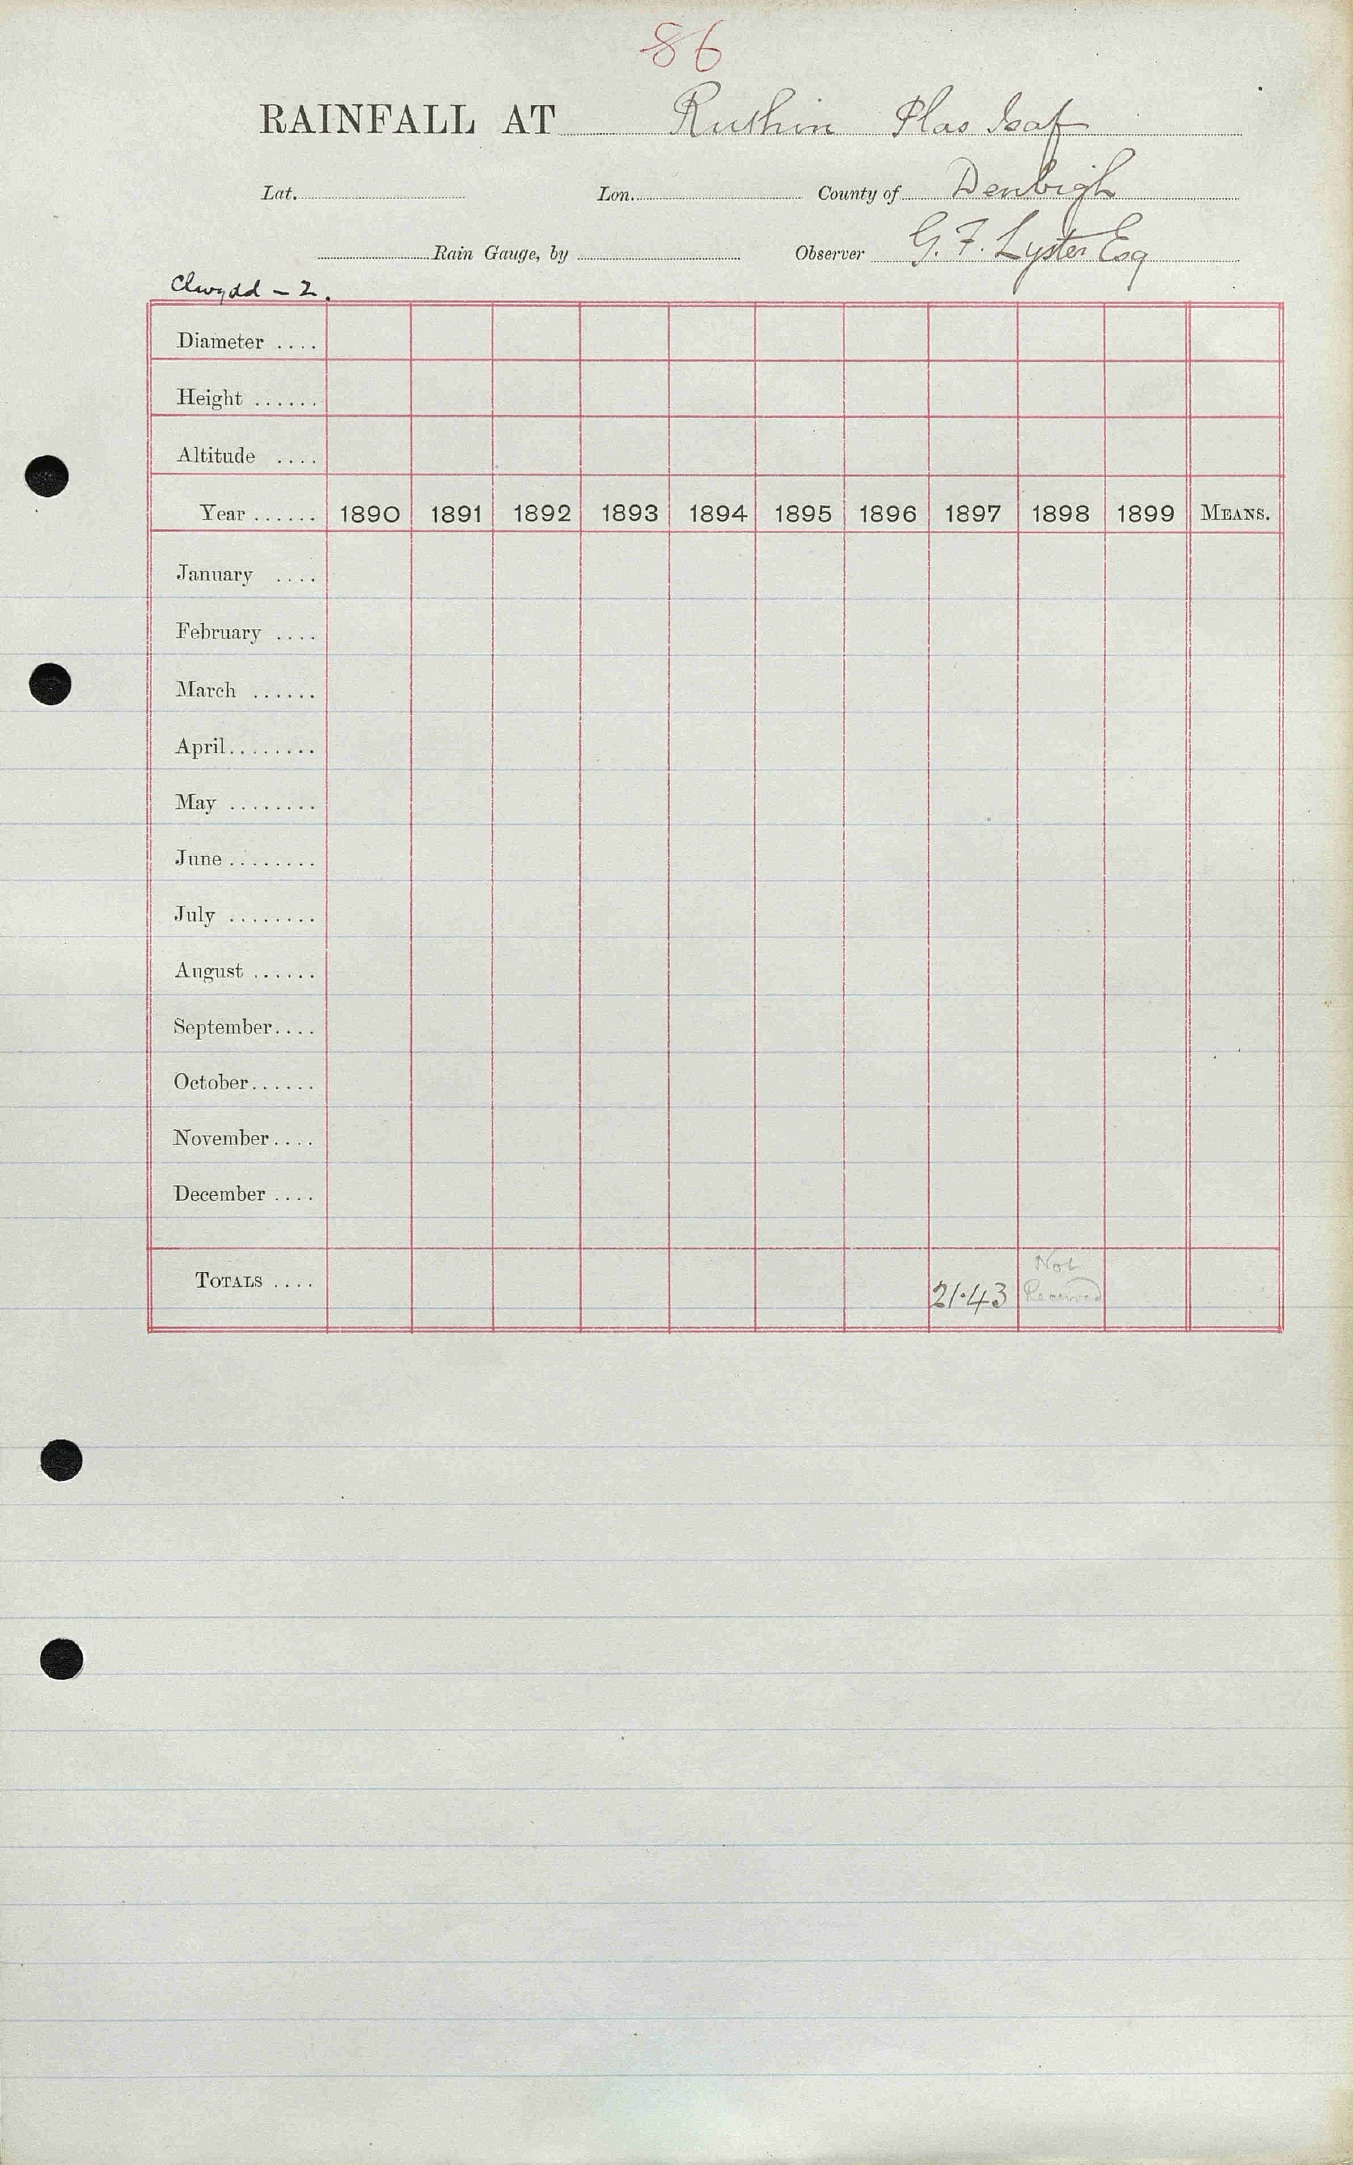 86
RAINFALL AT Ruthin Plas Isaf
Lat. Lon. County of Denbigh
Rain Gauge, by Observer G. F. Lyster Esq
Clwydd - 2.
Diameter ....
Height ......
Altitude ....
Year ...... 1890 1891 1892 1893 1894 1895 1896 1897 1898 1899 MEANS.
January ....
February ....
March ......
April........
May ........
June ........
July ........
August ......
September....
October......
November....
December ....
TOTALS .... 21.43 Not Received